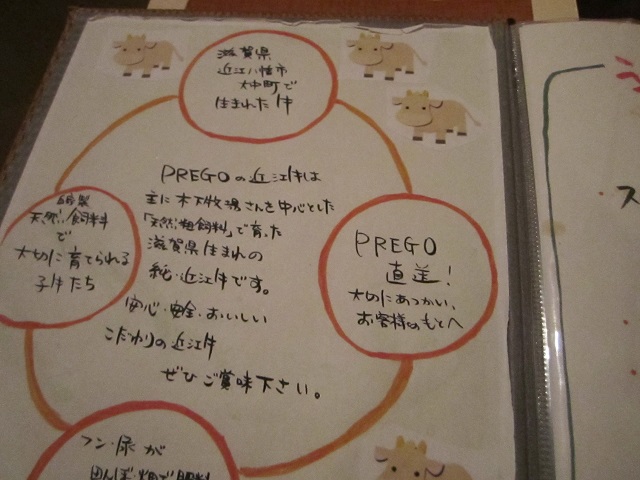 滋賀県
近江八幡市
大中町で
生まれた牛
PREGOの近江牛は
主に木下牧場さんを中心とした
「天然粗飼料」で育った
滋賀県生まれの
純・近江牛です。
安心・安全・おいしい
こだわりの近江牛
ぜひご賞味下さい。
PREGO
直送!
大切にあつかい、
お客様のもとへ
フン・尿が
田んぼ・畑で肥料
自家製
天然飼料
で
大切に育てられる
子牛たち
ス